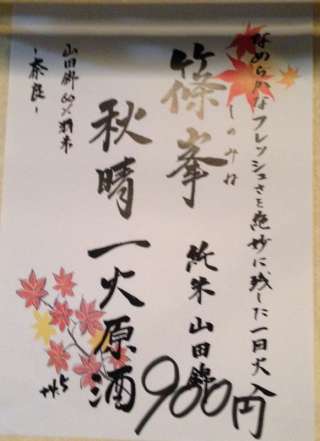 なめらかなフレッシュさを絶妙に残した一回火入
篠峯
しのみね
純米 山田錦
秋晴 一火原酒
900円
山田錦60%精米
-奈良-
+4.5